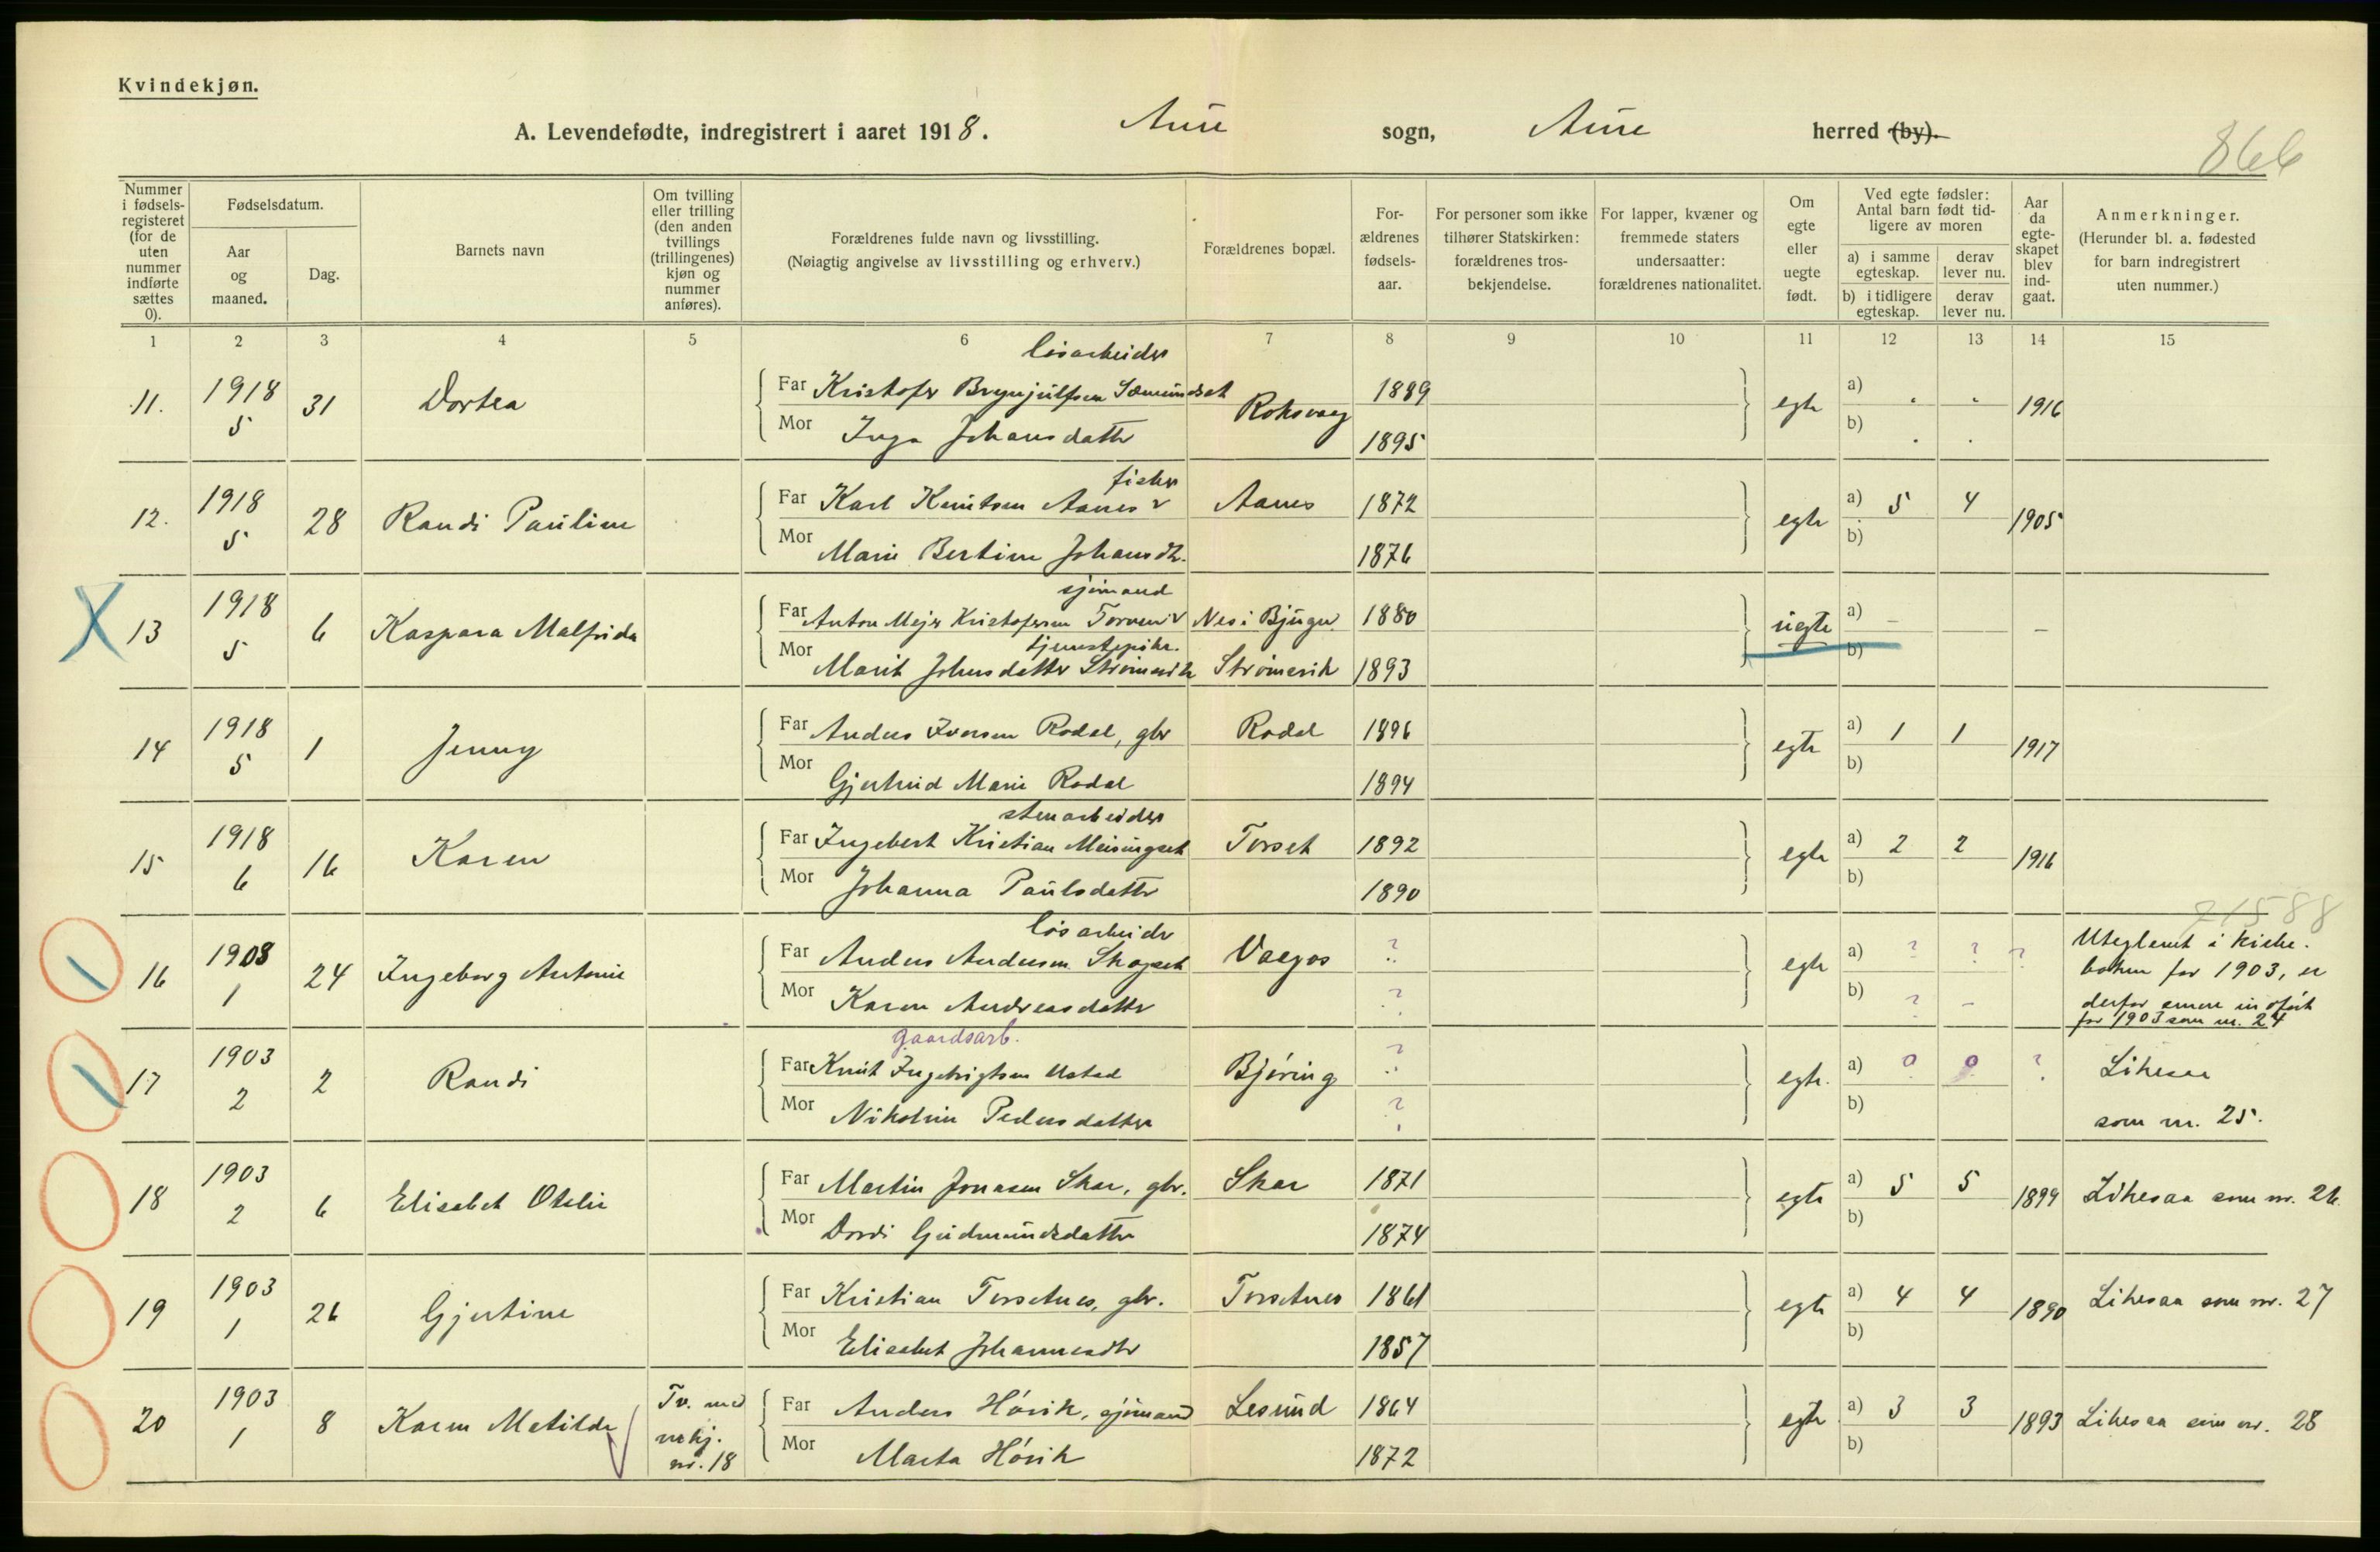 Kvindekjøn.
A. Levendefødte, indregistrert i aaret 1918. Aure sogn, Aure herred (by).
866
Nummer i fødselsregisteret (for de uten nummer indførte sættes 0).
Fødselsdatum.
Aar og maaned.
Dag.
Barnets navn
Om tvilling eller trilling (den anden tvillings (trillingenes) kjøn og nummer anføres).
Forældrenes fulde navn og livsstilling.
(Nøiagtig angivelse av livsstilling og erhverv.)
Forældrenes bopæl.
Forældrenes fødselsaar.
For personer som ikke tilhører Statskirken: forældrenes trosbekjendelse.
For lapper, kvæner og fremmede staters undersaatter: forældrenes nationalitet.
Om egte eller uegte født.
Ved egte fødsler: Antal barn født tidligere av moren
a) i samme egteskap.
derav lever nu.
b) i tidligere egteskap.
derav lever nu.
Aar da egteskapet blev indgaat.
Anmerkninger.
(Herunder bl. a. fødested for barn indregistrert uten nummer.)
1 2 3 4 5 6 7 8 9 10 11 12 13 14 15
løsarbeider
11. 1918 5 31 Dortea Far Kristofer Brynjulfsen Sæmundset Roksvaag 1889 egte a) b) 1916
Mor Inga Johansdatter 1895
fisker
12. 1918 5 28 Randi Pauline Far Karl Knutsen Aanes Aanes 1872 egte a) 5 4 b) 1905
Mor Marie Bertine Johansdtr. 1876
sjømand
13 1918 5 6 Kaspara Malfrida Far Anton Mejer Kristofersen Nes i Bjugn 1880 uegte a) – b) –
tjenestepike.
Mor Marit Johnsdatter Strømsvik Strømsvik 1893
14 1918 5 1 Jenny Far Anders Iversen Rodal, gbr Rodal 1896 egte a) 1 1 b) 1917
Mor Gjertrud Marie Rodal 1894
stenarbeider
15 1918 6 16 Karen Far Ingebert Kristian Meisingset Torset 1892 egte a) 2 2 b) 1916
Mor Johanna Paulsdatter 1890
løsarbeider
21588
16 1903 1 24 Ingeborg Antonie Far Anders Andersen Skogset Vaagos ? egte a) ? ? b) ? – ? Uteglemt i kirke-
boken for 1903, er
Mor Karen Andreasdatter ? derfor
for 1903 som nr. 24
gaardsarb.
17 1903 2 2 Randi Far Knut Ingebrigtsen Ustad Bjøring ? egte. a) 0 0 b) ? Likesaa
Mor Nikoline Pedersdatter ? som nr. 25.
18 1903 2 6 Elisabet Otelie Far Martin Jonasen Skar, gbr. Skar 1871 egte a) 5 5 b) 1899 Likesaa som nr. 26.
Mor Dordi Gudmundsdatter 1874
19 1903 1 26 Gjertine Far Kristian Torsetnes, gbr. Torsetnes 1861 egte a) 4 4 b) 1890 Likesaa som nr. 27
Mor Elisabet Johannesdtr 1857
20 1903 1 8 Karen Matilde Tv. med mkj. nr. 18 Far Anders Høvik, sjømand Lesund 1864 egte a) 3 3 b) 1893 Likesaa som nr. 28
Mor Marta Høvik 1872